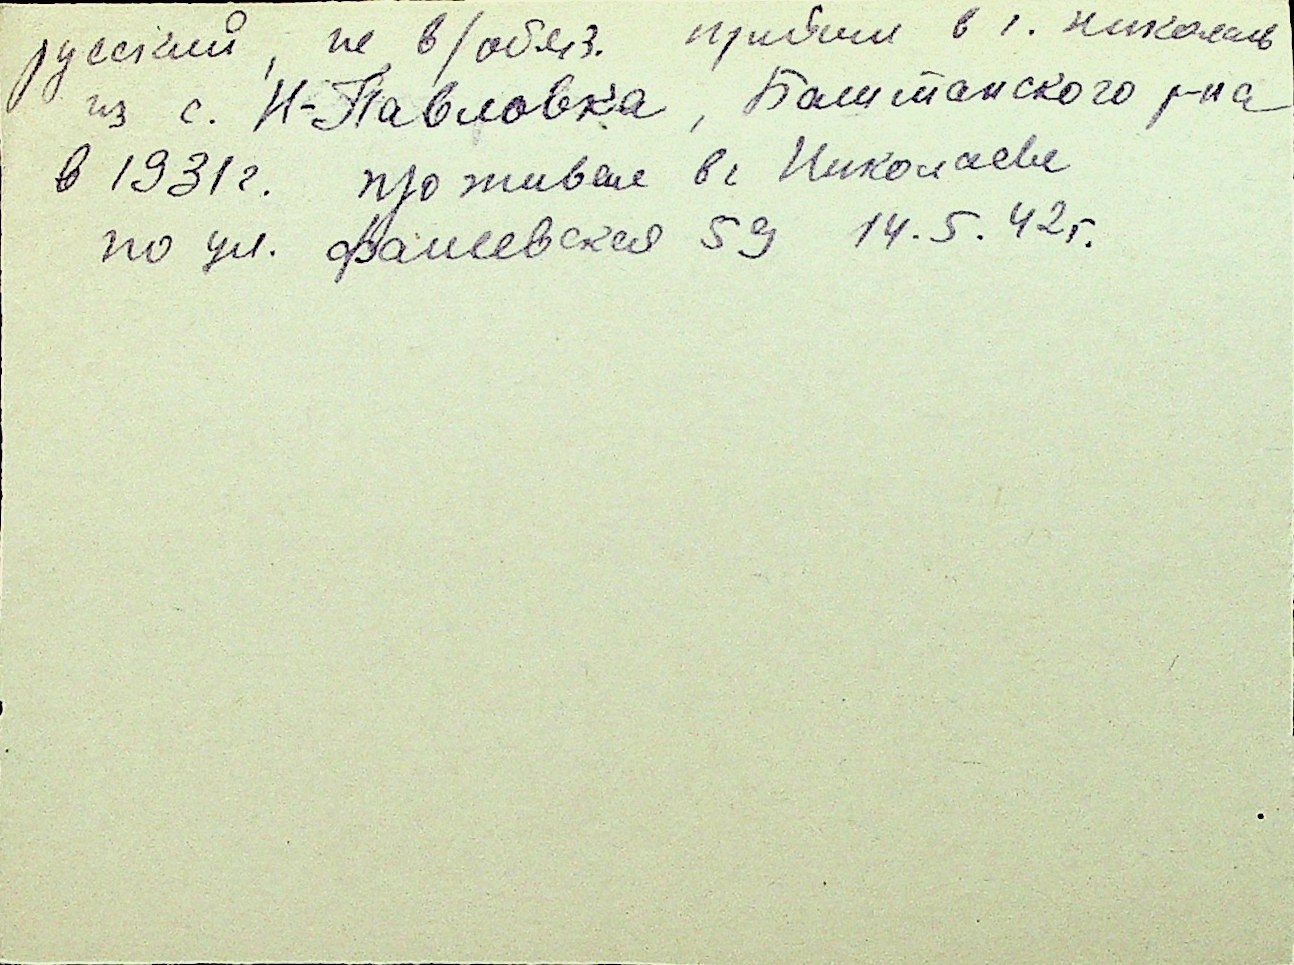 русский, не в/обяз. прибыл в г. Николаев
из с. Н-Павловка, Баштанского р-на
в 1931г. проживал в г Николаеве
по ул. 59 14.5.42г.